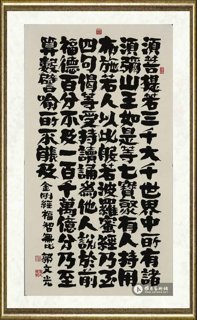 須菩提若三千大千世界中所有諸
須彌山王如是等七寶聚有人持用
布施若人以此般若波羅蜜經乃至
四句偈等受持讀誦為他人說於前
福德百分不及一百千萬億分乃至
算數譬喻所不能及 金剛經福智無比 鄭文光